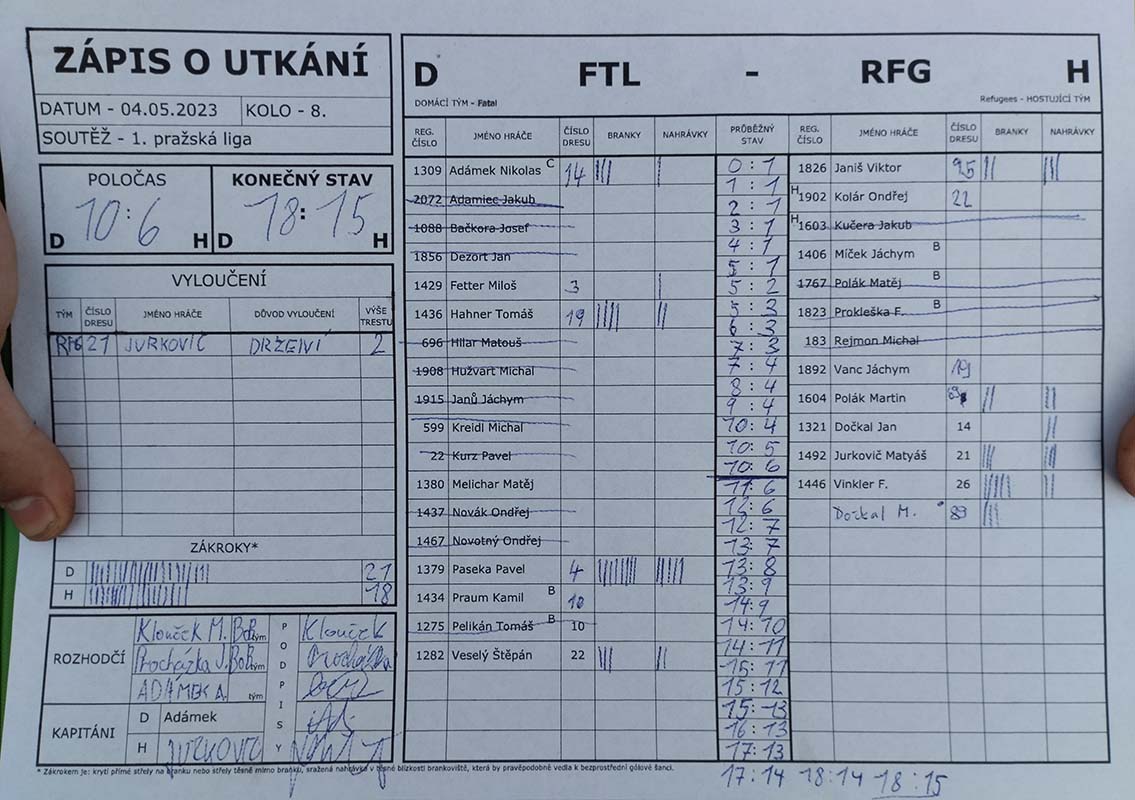 ZÁPIS O UTKÁNÍ
DATUM - 04.05.2023 KOLO - 8.
SOUTĚŽ - 1. pražská liga
POLOČAS
D 10:6 H
KONEČNÝ STAV
D 18:15 H
VYLOUČENÍ
TÝM ČÍSLO DRESU JMÉNO HRÁČE DŮVOD VYLOUČENÍ VÝŠE TRESTU
RFG 21 JURKOVIČ DRŽENÍ 2
ZÁKROKY*
D 21
H 18
ROZHODČÍ
Klouček M. BoB tým
Procházka J. BoB tým
ADÁMEK A. tým
PODPISY
Klouček
Procházka
KAPITÁNI
D Adámek
H JURKOVIČ
D FTL - RFG H
DOMÁCÍ TÝM - Fatal Refugees - HOSTUJÍCÍ TÝM
REG. ČÍSLO JMÉNO HRÁČE ČÍSLO DRESU BRANKY NAHRÁVKY
1309 Adámek Nikolas C 14 ||| |
2072 Adamiec Jakub
1088 Bačkora Josef
1856 Dezort Jan
1429 Fetter Miloš 3 |
1436 Hahner Tomáš 19 |||| ||
696 Hilar Matouš
1908 Hužvart Michal
1915 Janů Jáchym
599 Kreidl Michal
22 Kurz Pavel
1380 Melichar Matěj
1437 Novák Ondřej
1467 Novotný Ondřej
1379 Paseka Pavel 4
1434 Praum Kamil B 10
1275 Pelikán Tomáš B 10
1282 Veselý Štěpán 22 ||| ||
PRŮBĚŽNÝ STAV
0:1
1:1
2:1
3:1
4:1
5:1
5:2
5:3
6:3
7:3
7:4
8:4
9:4
10:4
10:5
10:6
11:6
12:6
12:7
13:7
13:8
13:9
14:9
14:10
14:11
15:11
15:12
15:13
16:13
17:13
17:14 18:14 18:15
REG. ČÍSLO JMÉNO HRÁČE ČÍSLO DRESU BRANKY NAHRÁVKY
1826 Janiš Viktor 95 || |||
H 1902 Kolár Ondřej 22
H 1603 Kučera Jakub
1406 Míček Jáchym B
1767 Polák Matěj B
1823 Prokleška F. B
183 Rejmon Michal
1892 Vanc Jáchym 19
1604 Polák Martin 69 || ||
1321 Dočkal Jan 14 ||
1492 Jurkovič Matyáš 21 ||| ||
1446 Vinkler F. 26 ||
Dočkal M. 89 |||
* Zákrokem je: krytí přímé střely na branku nebo střely těsně mimo branku, sražená nahrávka v těsné blízkosti brankoviště, která by pravěpodobně vedla k bezprostřední gólové šanci.